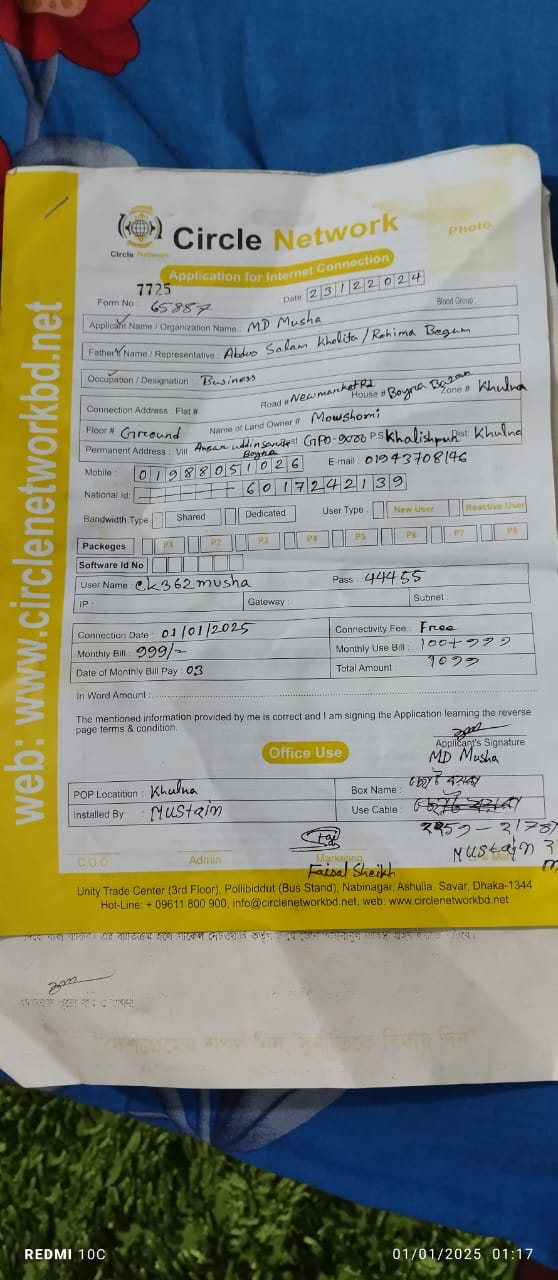 Circle Network
Circle Network
Photo
Application for Internet Connection
7725
Form No 65887
Date 23122024
Blood Group
Applicant Name / Organization Name : MD Musha
Father's Name / Representative : Abdus Salam Kholifa / Rohima Begum
Occupation / Designation : Business
Connection Address : Flat # Road # Newmarket Rd House # Boyra Bazar Zone # Khulna
Floor # Ground Name of Land Owner # Mowshomi
Permanent Address : Vill Boyra GPO-9000 PS Khalishpur Dist: Khulna
Mobile : 01988051026 E-mail : 01943708146
National Id: 6017242139
Bandwidth Type Shared Dedicated User Type : New User Reactive User
Packeges P1 P2 P3 P4 P5 P6 P7 P8
Software Id No
User Name : ck362musha Pass : 44455
IP : Gateway : Subnet :
Connection Date : 01/01/2025 Connectivity Fee : Free
Monthly Bill : 999/- Monthly Use Bill : 100+999
Date of Monthly Bill Pay : 03 Total Amount : 1099
In Word Amount :
The mentioned information provided by me is correct and I am signing the Application learning the reverse
page terms & condition.
Applicant's Signature
MD Musha
Office Use
POP Locatition : Khulna Box Name :
Installed By : Mustain Use Cable :
Mustain
C.O.O Admin Marketing
Faisal Sheikh
Unity Trade Center (3rd Floor), Pollibiddut (Bus Stand), Nabinagar, Ashulia, Savar, Dhaka-1344
Hot-Line: + 09611 800 900, info@circlenetworkbd.net, web: www.circlenetworkbd.net
web: www.circlenetworkbd.net
REDMI 10C
01/01/2025 01:17